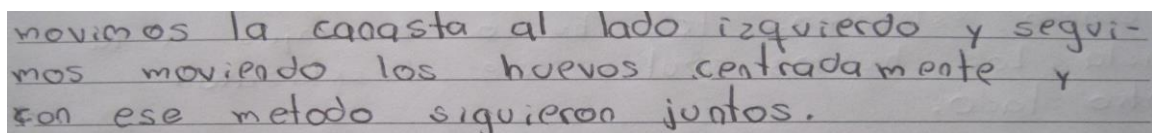 movimos la canasta al lado izquierdo y segui-
mos moviendo los huevos centradamente y
con ese metodo siguieron juntos.